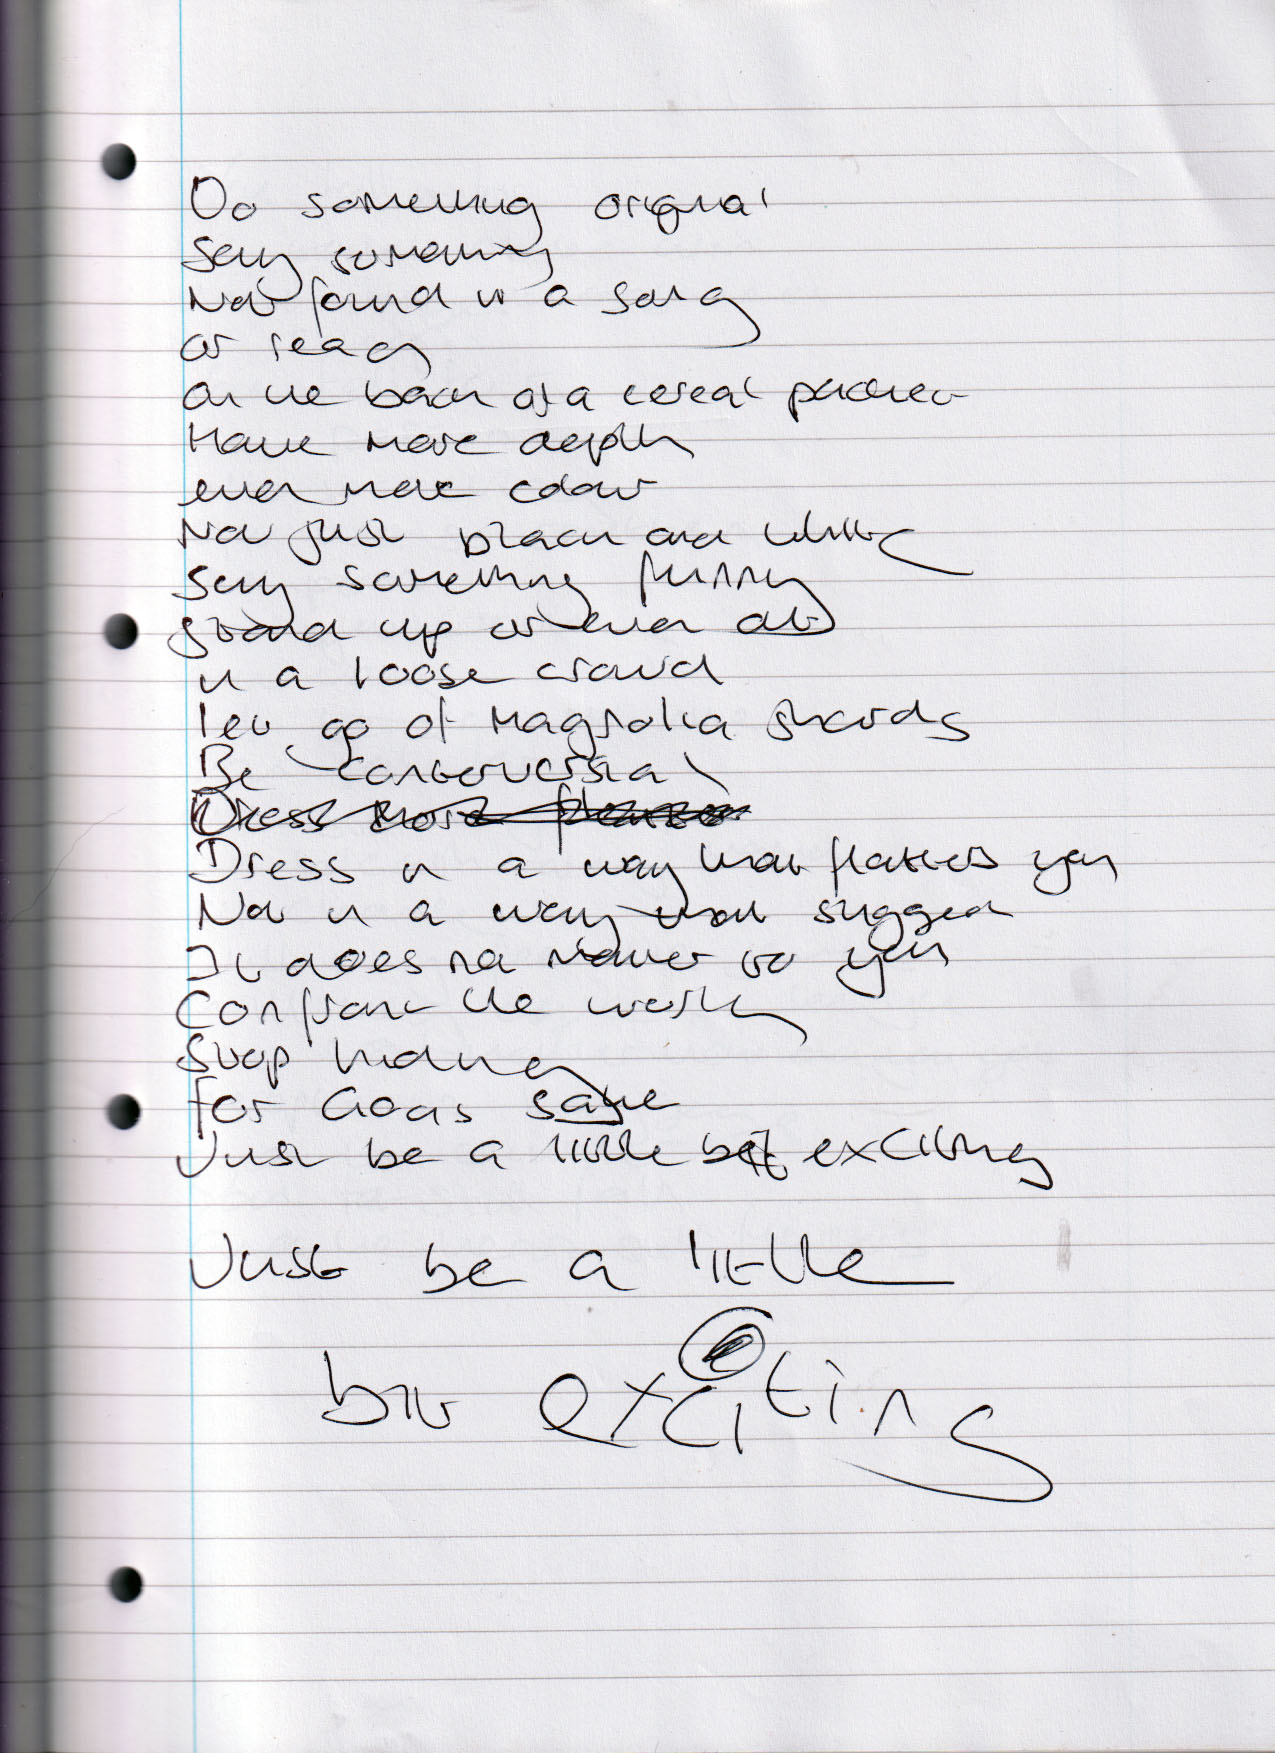 Do something original
Say something
Not found in a song
or read
On the back of a cereal packet
Have more depth
even more colour
Not just black and white
Say something funny
stand up or even out
in a loose crowd
let go of Magnolia shards
Be conterversial
Dress more
Dress in a way that flatters you
Not in a way that suggest
It does not matter to you
Confront the world
Stop hiding
for Gods sake
Just be a little bit exciting
Just be a little
bit exciting